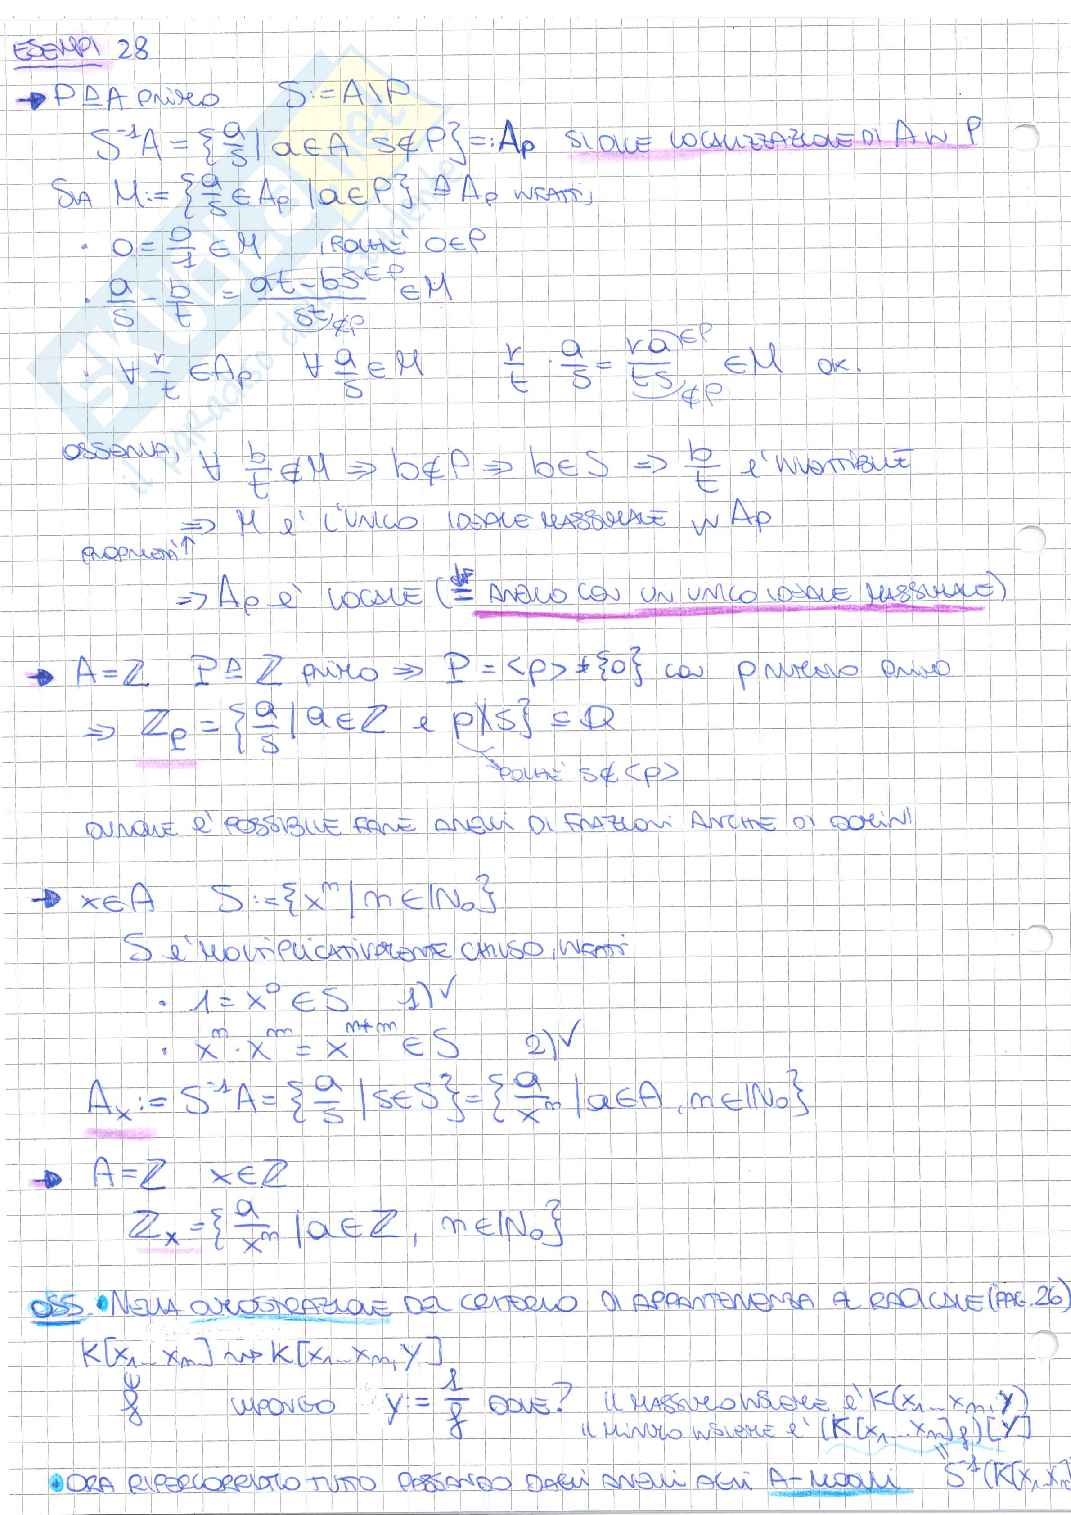 ESEMPI 28
→ P ⊴ A primo S := A\P
S⁻¹A = {a/s | a∈A s∉P} =: A_P SI DICE LOCALIZZAZIONE DI A IN P
SIA M := {a/s ∈ A_P | a∈P} ⊴ A_P INFATTI,
· 0 = 0/1 ∈ M POICHE' 0∈P
· a/s - b/t = (at - bs)/(st) ∈M ∈P ∉P
· ∀ r/t ∈ A_P ∀ a/s ∈ M r/t · a/s = ra/ts ∈ M OK. ∈P ∉P
OSSERVA, ∀ b/t ∉ M ⇒ b∉P ⇒ b∈S ⇒ b/t e' INVERTIBILE
⇒ M e' L'UNICO IDEALE MASSIMALE IN A_P
PROPRIETA' ↑
⇒ A_P e' LOCALE (= ANELLO CON UN UNICO IDEALE MASSIMALE)
def
→ A = ℤ P ⊴ ℤ primo ⇒ P = <p> ≠ {0} con p numero primo
⇒ ℤ_P = {a/s | a∈ℤ e p∤s} ⊆ ℚ
POICHE' s∉<p>
DUNQUE e' POSSIBILE FARE ANELLI DI FRAZIONI ANCHE DI DOMINI
→ x∈A S := {xⁿ | n∈ℕ₀}
S e' MOLTIPLICATIVAMENTE CHIUSO, INFATTI
· 1 = x⁰ ∈ S 1) √
· xⁿ · xᵐ = xⁿ⁺ᵐ ∈ S 2) √
A_x := S⁻¹A = {a/s | s∈S} = {a/xⁿ | a∈A, n∈ℕ₀}
→ A = ℤ x∈ℤ
ℤ_x = {a/xⁿ | a∈ℤ, n∈ℕ₀}
OSS • NELLA DIMOSTRAZIONE DEL CRITERIO DI APPARTENENZA AL RADICALE (PAG. 26)
K[x₁...xₙ] ⇝ K[x₁...xₙ, y]
f IMPONGO y = 1/f DOVE? IL MASSIMO INSIEME e' K(x₁...xₙ, y)
IL MINIMO INSIEME e' (K[x₁...xₙ]_f)[y]
• ORA RIPERCORRIAMO TUTTO PASSANDO DAGLI ANELLI AGLI A-MODULI S⁻¹(K[x₁...xₙ